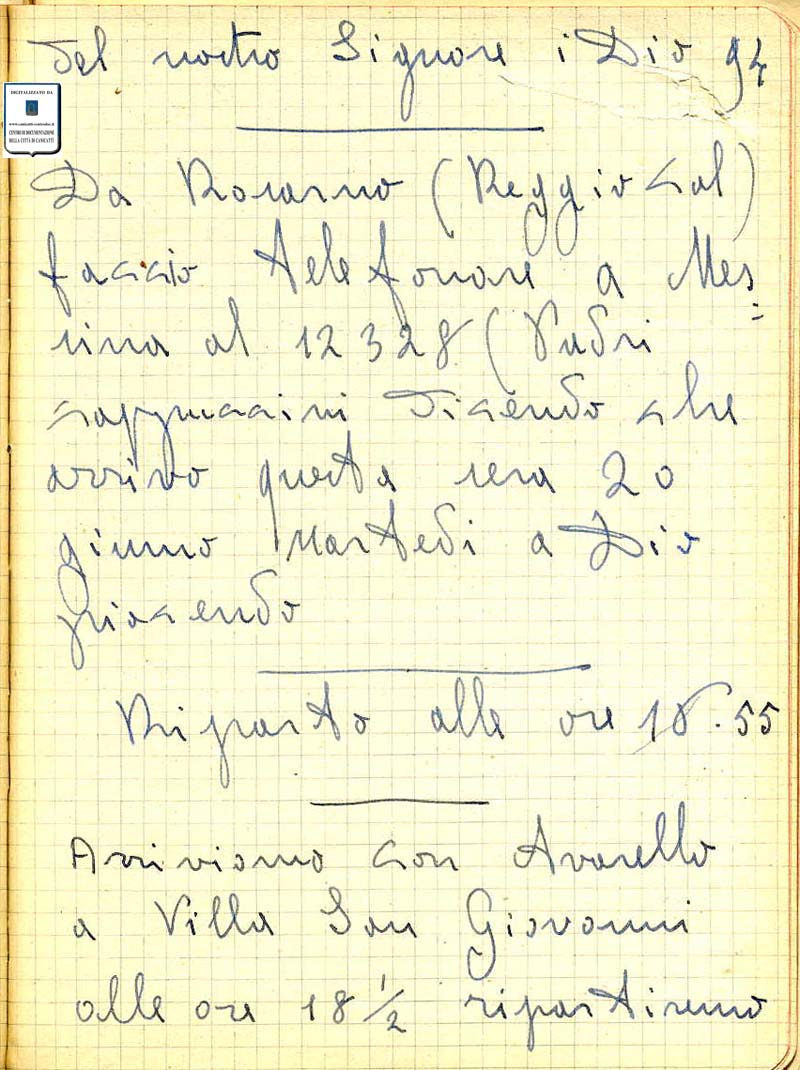 del nostro Signore i Dio 94
DIGITALIZZATO DA
www.canicatti-centrodoc.it
CENTRO DI DOCUMENTAZIONE
DELLA CITTÀ DI CANICATTÌ
Da Rosarno (Reggio Cal)
faccio telefonare a Mes=
sina al 12328 (Padri
cappuccini dicendo che
arrivo questa sera 20
giunno Martedi a Dio
piacendo
Riparto alle ore 18.55
Arriviamo con Avarello
a Villa San Giovanni
alle ore 18 1/2 ripartiremo